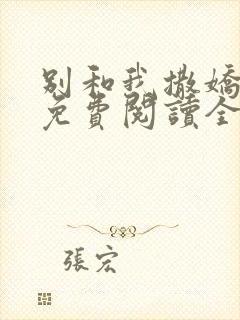 別和我撒嬌
免費閱讀全
張宏